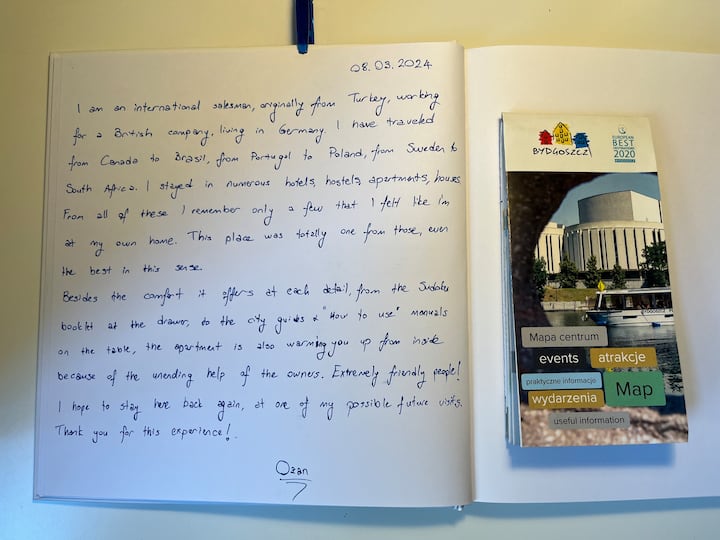 08.03.2024
I am an international salesman, originally from Turkey, working
for a British company, living in Germany. I have traveled
from Canada to Brasil, from Portugal to Poland, from Sweden to
South Africa. I stayed in numerous hotels, hostels, apartments, houses
From all of these I remember only a few that I felt like I'm
at my own home. This place was totally one from those, even
the best in this sense.
Besides the comfort it offers at each detail, from the Sudoku
booklet at the drawer, to the city guides & "How to use" manuals
on the table, the apartment is also warming you up from inside
because of the unending help of the owners. Extremely friendly people!
I hope to stay here back again, at one of my possible future visits.
Thank you for this experience!
Ozan
BYDGOSZCZ
EUROPEAN
BEST
DESTINATIONS
2020
BYDGOSZCZ
Mapa centrum
events
atrakcje
praktyczne informacje
Map
wydarzenia
useful information